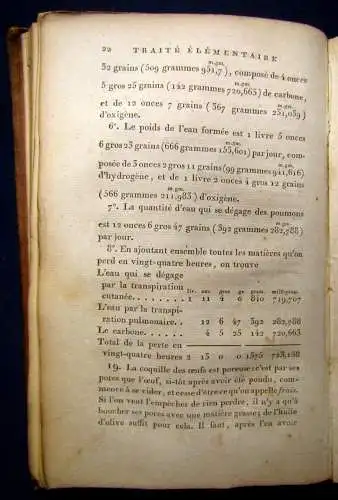 22 TRAITÉ ÉLÉMENTAIRE
m.gm.
32 grains (509 grammes 951,7), composé de 4 onces
m.gm.
5 gros 25 grains (142 grammes 720,663) de carbone,
m.gm.
et de 12 onces 7 grains (367 grammes 231,039)
d'oxigène.
6°. Le poids de l'eau formée est 1 livre 5 onces
m.gm.
6 gros 23 grains (666 grammes 153,601) par jour, com-
m.gm.
posée de 3 onces 2 gros 11 grains (99 grammes 941,616)
d'hydrogène, et de 1 livre 2 onces 4 gros 12 grains
m.gm.
(566 grammes 211,985) d'oxigène.
7°. La quantité d'eau qui se dégage des poumons
m.gm.
est 12 onces 6 gros 47 grains (392 grammes 282,788)
par jour.
8°. En ajoutant ensemble toutes les matières qu'on
perd en vingt-quatre heures, on trouve
L'eau qui se dégage
par la transpiration liv. onc. gros gr. gram. milligram.
cutanée........ 1 11 2 6 840 719,707
L'eau par la transpi-
ration pulmonaire.. 12 6 47 392 282,788
Le carbone....... 4 5 25 142 720,663
Total de la perte en
vingt-quatre heures 2 13 0 0 1375 723,158
19. La coquille des œufs est poreuse: c'est par ses
pores que l'œuf, si-tôt après avoir été pondu, com-
mence à se vider, et cesse d'être ce qu'on appelle frais.
Si l'on veut l'empêcher de rien perdre, il n'y a qu'à
boucher ses pores avec une matière grasse; de l'huile
d'olive suffit pour cela. Il faut, après l'en avoir